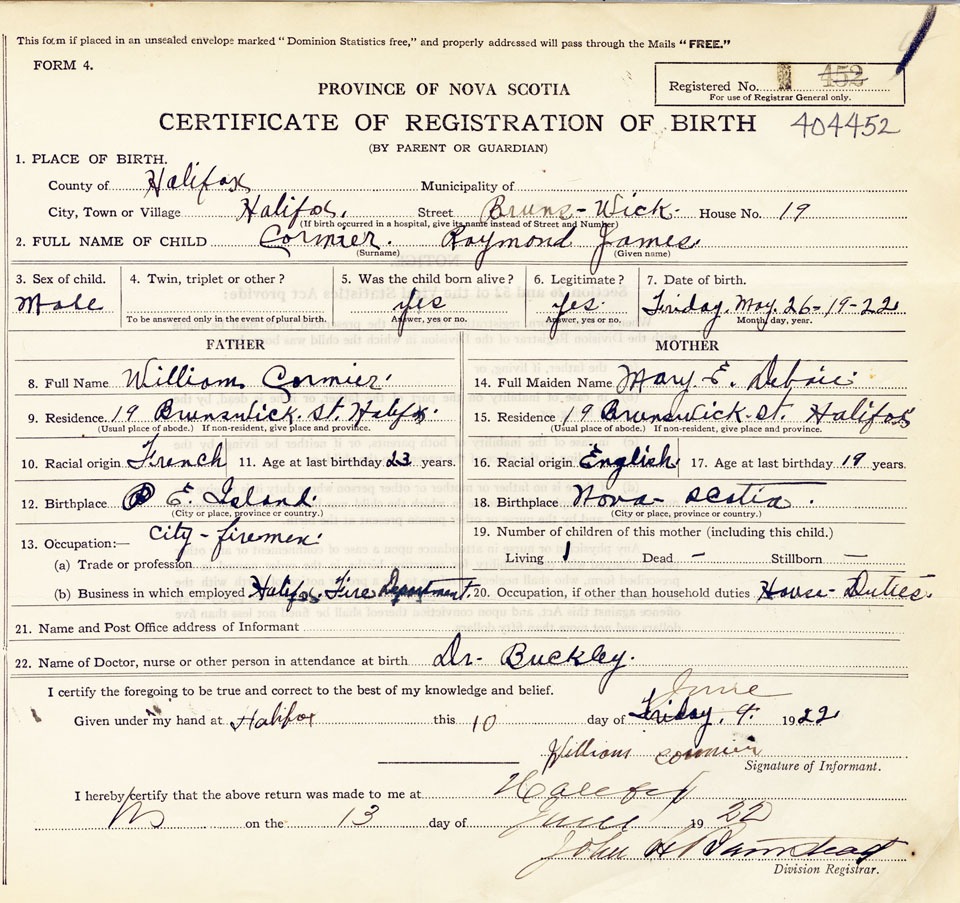 This form if placed in an unsealed envelope marked "Dominion Statistics free," and properly addressed will pass through the Mails "FREE."
FORM 4.
Registered No. 452
For use of Registrar General only.
PROVINCE OF NOVA SCOTIA
CERTIFICATE OF REGISTRATION OF BIRTH 404452
(BY PARENT OR GUARDIAN)
1. PLACE OF BIRTH.
County of Halifax Municipality of
City, Town or Village Halifax. Street Bruns-Wick. House No. 19
(If birth occurred in a hospital, give its name instead of Street and Number)
2. FULL NAME OF CHILD Cormier. Raymond James
(Surname) (Given name)
3. Sex of child. 4. Twin, triplet or other? 5. Was the child born alive? 6. Legitimate? 7. Date of birth.
Male yes yes. Friday. May. 26-19-22
To be answered only in the event of plural birth. Answer, yes or no. Answer, yes or no. Month, day, year.
FATHER
8. Full Name William Cormier.
9. Residence 19 Brunswick. St. Halifax.
(Usual place of abode.) If non-resident, give place and province.
10. Racial origin French 11. Age at last birthday 23 years.
12. Birthplace P E. Island.
(City or place, province or country.)
13. Occupation:— City-firemen.
(a) Trade or profession
(b) Business in which employed Halifax Fire Department.
MOTHER
14. Full Maiden Name Mary E.
15. Residence 19 Brunswick-St. Halifax
(Usual place of abode.) If non-resident, give place and province.
16. Racial origin English. 17. Age at last birthday 19 years.
18. Birthplace Nova-Scotia.
(City or place, province or country.)
19. Number of children of this mother (including this child.)
Living 1 Dead — Stillborn —
20. Occupation, if other than household duties House-Duties.
21. Name and Post Office address of Informant
22. Name of Doctor, nurse or other person in attendance at birth Dr- Buckley.
I certify the foregoing to be true and correct to the best of my knowledge and belief.
June
Given under my hand at Halifax this 10 day of Friday. 9. 1922
William Cormier
Signature of Informant.
I hereby certify that the above return was made to me at Halifax
on the 13 day of June 1922
John H
Division Registrar.